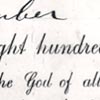 mber
ght hundred
the God of all